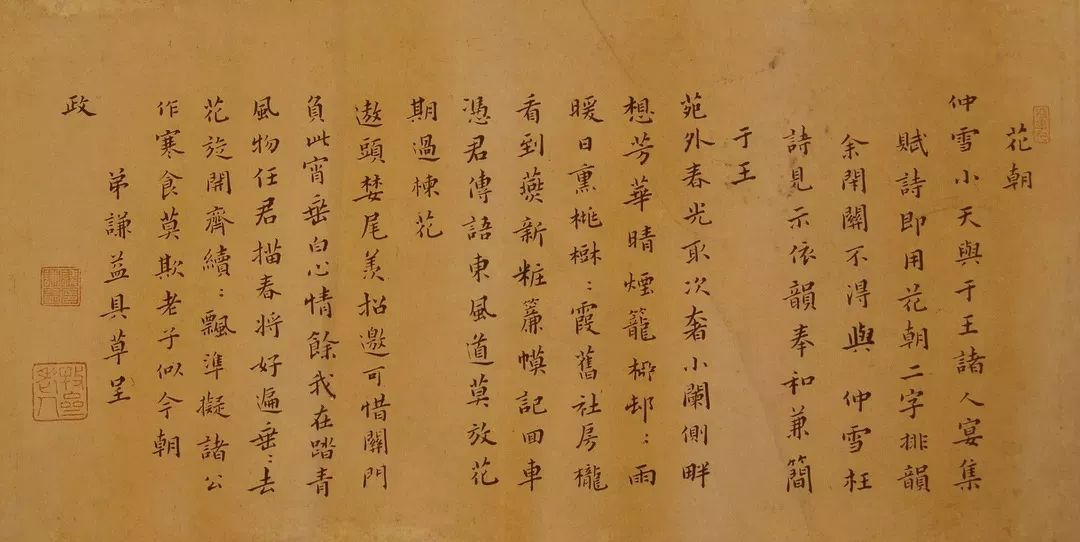 花朝
仲雪小天與于王諸人宴集
賦詩即用花朝二字排韻
余閉關不淂與 仲雪枉
詩見示依韻奉和兼簡
于王
苑外春光取次奢小闌側畔
想芳華晴煙籠柳邨：雨
暖日熏桃樹：霞舊社房櫳
看到燕新粧簾幙記回車
憑君傳語東風道莫放花
期過楝花
遨頭婪尾羡招邀可惜關門
負此宵垂白心情餘我在踏青
風物任君描春將好遍垂：去
花旋開齊續：飄準擬諸公
作寒食莫欺老子似今朝
弟謙益具草呈
政